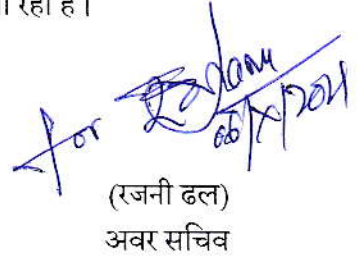 रहा है।
for
06/X/2021
(रजनी ढल)
अवर सचिव